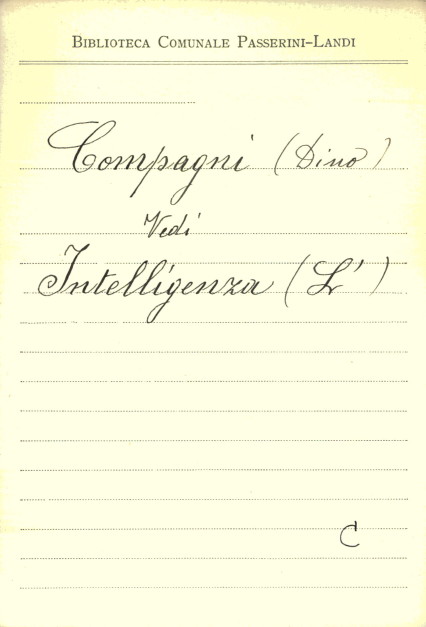 Biblioteca Comunale Passerini-Landi
Compagni (Dino)
Vedi
Intelligenza (L')
C